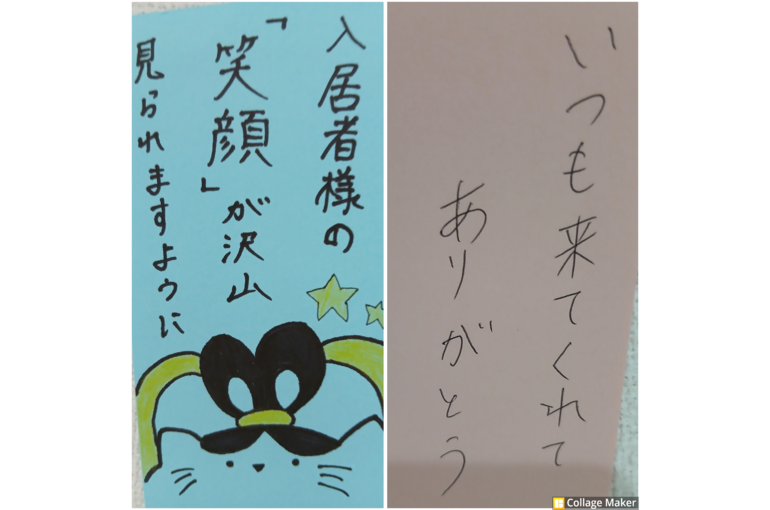 入居者様の
「笑顔」が沢山
見られますように
いつも来てくれて
ありがとう
Collage Maker